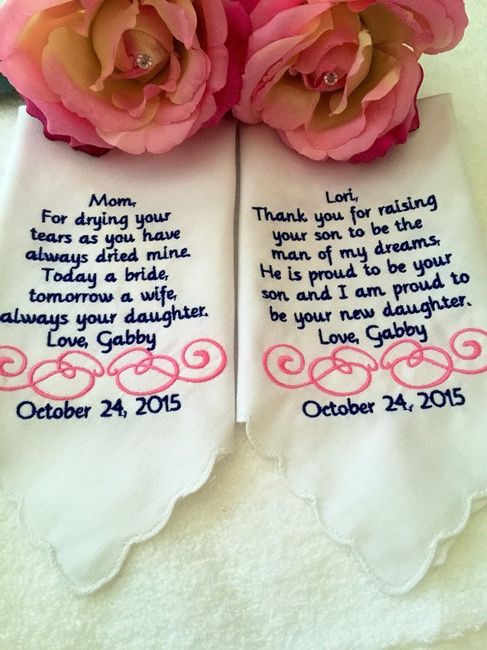 Mom,
For drying your
tears as you have
always dried mine.
Today a bride,
tomorrow a wife,
always your daughter.
Love, Gabby
October 24, 2015
Lori,
Thank you for raising
your son to be the
man of my dreams.
He is proud to be your
son and I am proud to
be your new daughter.
Love, Gabby
October 24, 2015